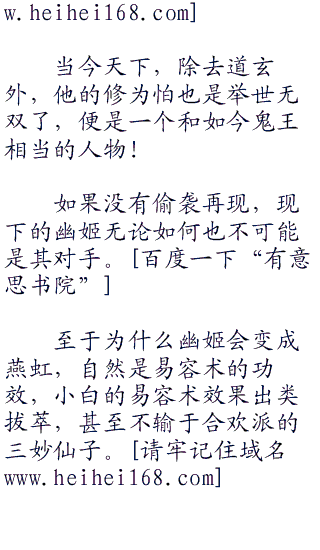 w.heihei168.com]
当今天下，除去道玄
外，他的修为怕也是举世无
双了，便是一个和如今鬼王
相当的人物！
如果没有偷袭再现，现
下的幽姬无论如何也不可能
是其对手。[百度一下“有意
思书院”]
至于为什么幽姬会变成
燕虹，自然是易容术的功
效，小白的易容术效果出类
拔萃，甚至不输于合欢派的
三妙仙子。[请牢记住域名
www.heihei168.com]